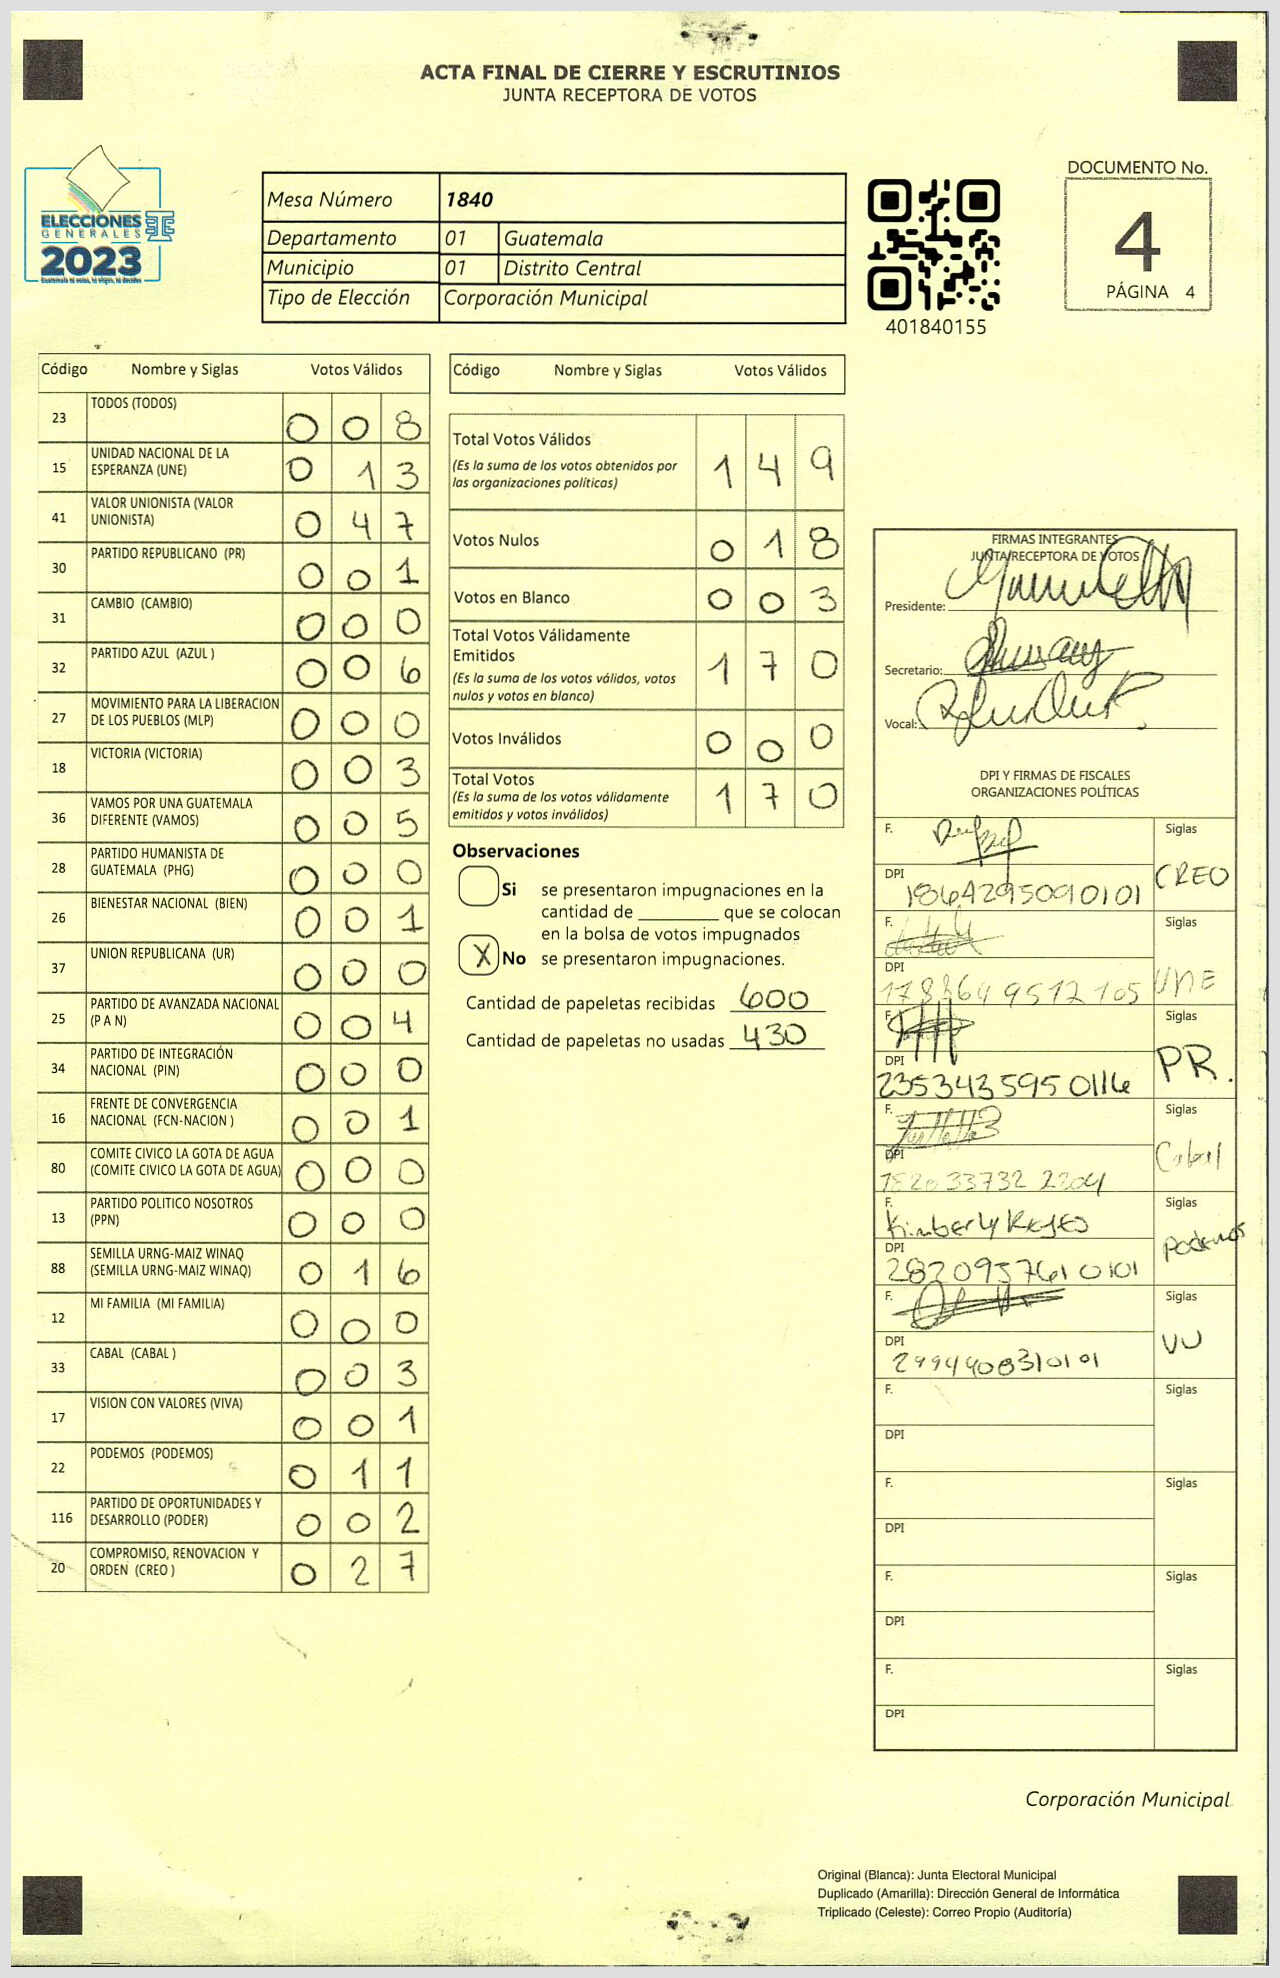 ACTA FINAL DE CIERRE Y ESCRUTINIOS
JUNTA RECEPTORA DE VOTOS
ELECCIONES
GENERALES
2023
Mesa Número 1840
Departamento 01 Guatemala
Municipio 01 Distrito Central
Tipo de Elección Corporación Municipal
401840155
DOCUMENTO No.
4
PÁGINA 4
Código Nombre y Siglas Votos Válidos
23 TODOS (TODOS) 0 0 8
15 UNIDAD NACIONAL DE LA
ESPERANZA (UNE) 0 1 3
41 VALOR UNIONISTA (VALOR
UNIONISTA) 0 4 7
30 PARTIDO REPUBLICANO (PR) 0 0 1
31 CAMBIO (CAMBIO) 0 0 0
32 PARTIDO AZUL (AZUL ) 0 0 6
27 MOVIMIENTO PARA LA LIBERACION
DE LOS PUEBLOS (MLP) 0 0 0
18 VICTORIA (VICTORIA) 0 0 3
36 VAMOS POR UNA GUATEMALA
DIFERENTE (VAMOS) 0 0 5
28 PARTIDO HUMANISTA DE
GUATEMALA (PHG) 0 0 0
26 BIENESTAR NACIONAL (BIEN) 0 0 1
37 UNION REPUBLICANA (UR) 0 0 0
25 PARTIDO DE AVANZADA NACIONAL
(P A N) 0 0 4
34 PARTIDO DE INTEGRACIÓN
NACIONAL (PIN) 0 0 0
16 FRENTE DE CONVERGENCIA
NACIONAL (FCN-NACION ) 0 0 1
80 COMITE CIVICO LA GOTA DE AGUA
(COMITE CIVICO LA GOTA DE AGUA) 0 0 0
13 PARTIDO POLITICO NOSOTROS
(PPN) 0 0 0
88 SEMILLA URNG-MAIZ WINAQ
(SEMILLA URNG-MAIZ WINAQ) 0 1 6
12 MI FAMILIA (MI FAMILIA) 0 0 0
33 CABAL (CABAL ) 0 0 3
17 VISION CON VALORES (VIVA) 0 0 1
22 PODEMOS (PODEMOS) 0 1 1
116 PARTIDO DE OPORTUNIDADES Y
DESARROLLO (PODER) 0 0 2
20 COMPROMISO, RENOVACION Y
ORDEN (CREO ) 0 2 7
Código Nombre y Siglas Votos Válidos
Total Votos Válidos
(Es la suma de los votos obtenidos por
las organizaciones políticas) 1 4 9
Votos Nulos 0 1 8
Votos en Blanco 0 0 3
Total Votos Válidamente
Emitidos
(Es la suma de los votos válidos, votos
nulos y votos en blanco) 1 7 0
Votos Inválidos 0 0 0
Total Votos
(Es la suma de los votos válidamente
emitidos y votos inválidos) 1 7 0
Observaciones
Si se presentaron impugnaciones en la
cantidad de ________ que se colocan
en la bolsa de votos impugnados
X No se presentaron impugnaciones.
Cantidad de papeletas recibidas 600
Cantidad de papeletas no usadas 430
FIRMAS INTEGRANTES
JUNTA RECEPTORA DE VOTOS
Presidente:
Secretario:
Vocal:
DPI Y FIRMAS DE FISCALES
ORGANIZACIONES POLÍTICAS
F. Siglas
DPI CREO
1864295090101
F. Siglas
DPI UNE
F. Siglas
DPI PR.
2353435950116
F. Siglas
DPI Cabal
F. Siglas
Kimberly Reyes Podemos
DPI
2820957610101
F. Siglas
DPI VU
2994408310101
F. Siglas
DPI
F. Siglas
DPI
F. Siglas
DPI
F. Siglas
DPI
Corporación Municipal
Original (Blanca): Junta Electoral Municipal
Duplicado (Amarilla): Dirección General de Informática
Triplicado (Celeste): Correo Propio (Auditoría)